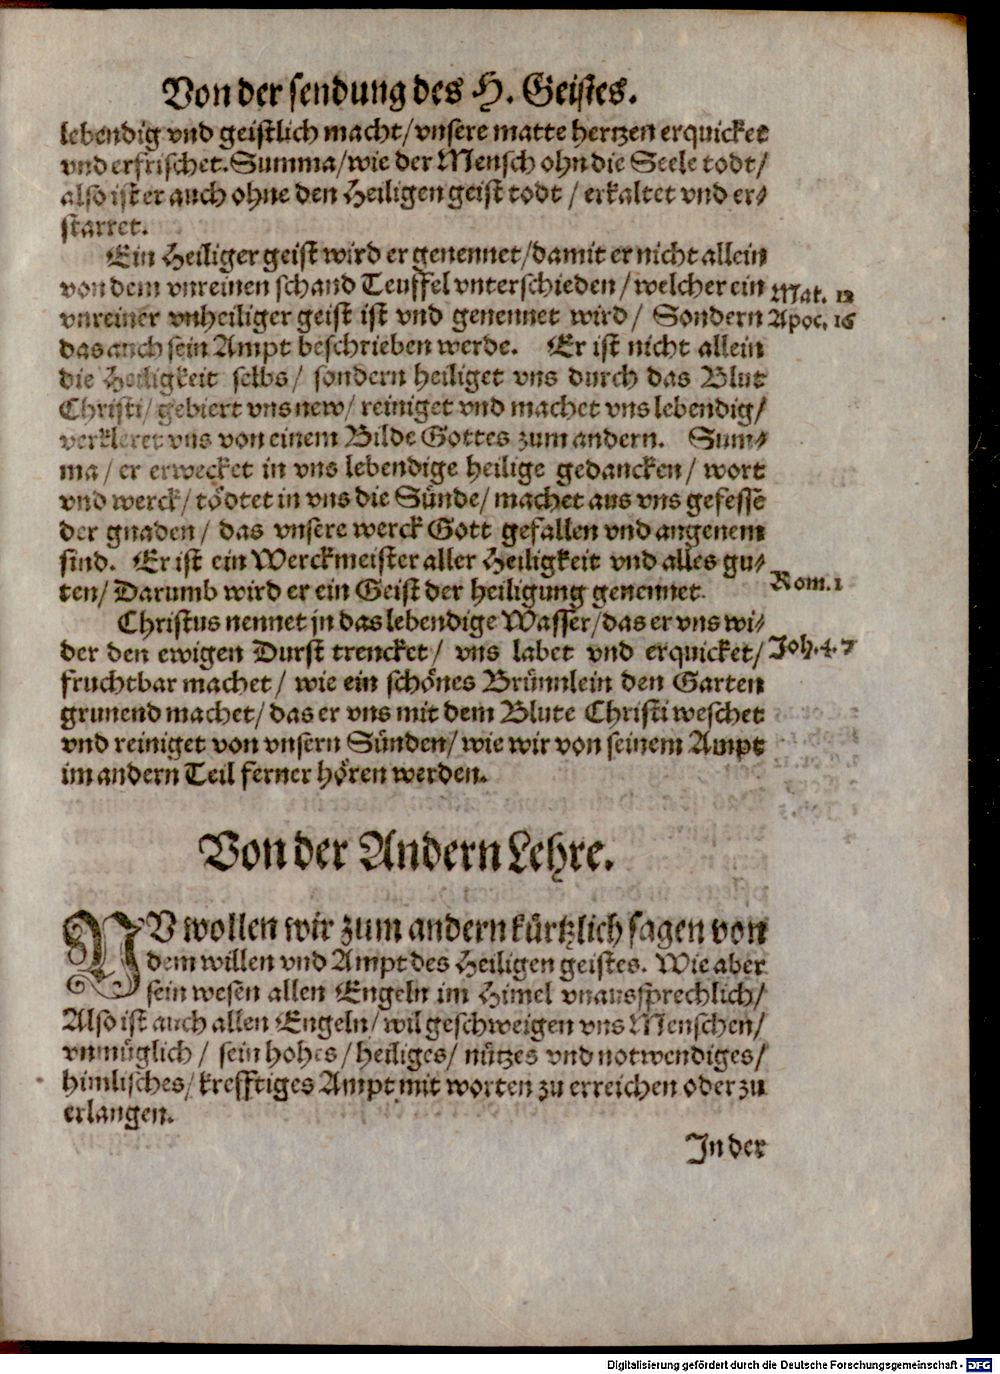 Von der sendung des H. Geistes.
lebendig vnd geistlich macht/ vnsere matte hertzen erquicket
vnd erfrischet. Summa/ wie der Mensch ohn die Seele todt/
also ist er auch ohne den Heiligen geist todt / erkaltet vnd er-
starret.
Ein Heiliger geist wird er genennet/ damit er nicht allein
von dem vnreinen schand Teuffel vnterschieden / welcher ein
Mat. 12
vnreiner vnheiliger geist ist vnd genennet wird/ Sondern
Apoc. 16
das auch sein Ampt beschrieben werde. Er ist nicht allein
die Heiligkeit selbs/ sondern heiliget vns durch das Blut
Christi/ gebiert vns new/ reiniget vnd machet vns lebendig/
verkleret vns von einem Bilde Gottes zum andern. Sum-
ma/ er erwecket in vns lebendige heilige gedancken/ wort
vnd werck/ tödtet in vns die Sünde/ machet aus vns gefesse
der gnaden/ das vnsere werck Gott gefallen vnd angenem
sind. Er ist ein Werckmeister aller Heiligkeit vnd alles gu-
ten/ Darumb wird er ein Geist der heiligung genennet.
Rom. 1
Christus nennet jn das lebendige Wasser/ das er vns wi-
der den ewigen Durst trencket/ vns labet vnd erquicket/
Joh. 4. 7
fruchtbar machet/ wie ein schönes Brünnlein den Garten
grunend machet/ das er vns mit dem Blute Christi weschet
vnd reiniget von vnsern Sünden/ wie wir von seinem Ampt
im andern Teil ferner hören werden.
Von der Andern Lehre.
NV wollen wir zum andern kürtzlich sagen von
dem willen vnd Ampt des Heiligen geistes. Wie aber
sein wesen allen Engeln im Himel vnaussprechlich/
Also ist auch allen Engeln/ wil geschweigen vns Menschen/
vnmüglich / sein hohes/ heiliges/ nützes vnd notwendiges/
himlisches/ krefftiges Ampt mit worten zu erreichen oder zu
erlangen.
In der
Digitalisierung gefördert durch die Deutsche Forschungsgemeinschaft - DFG